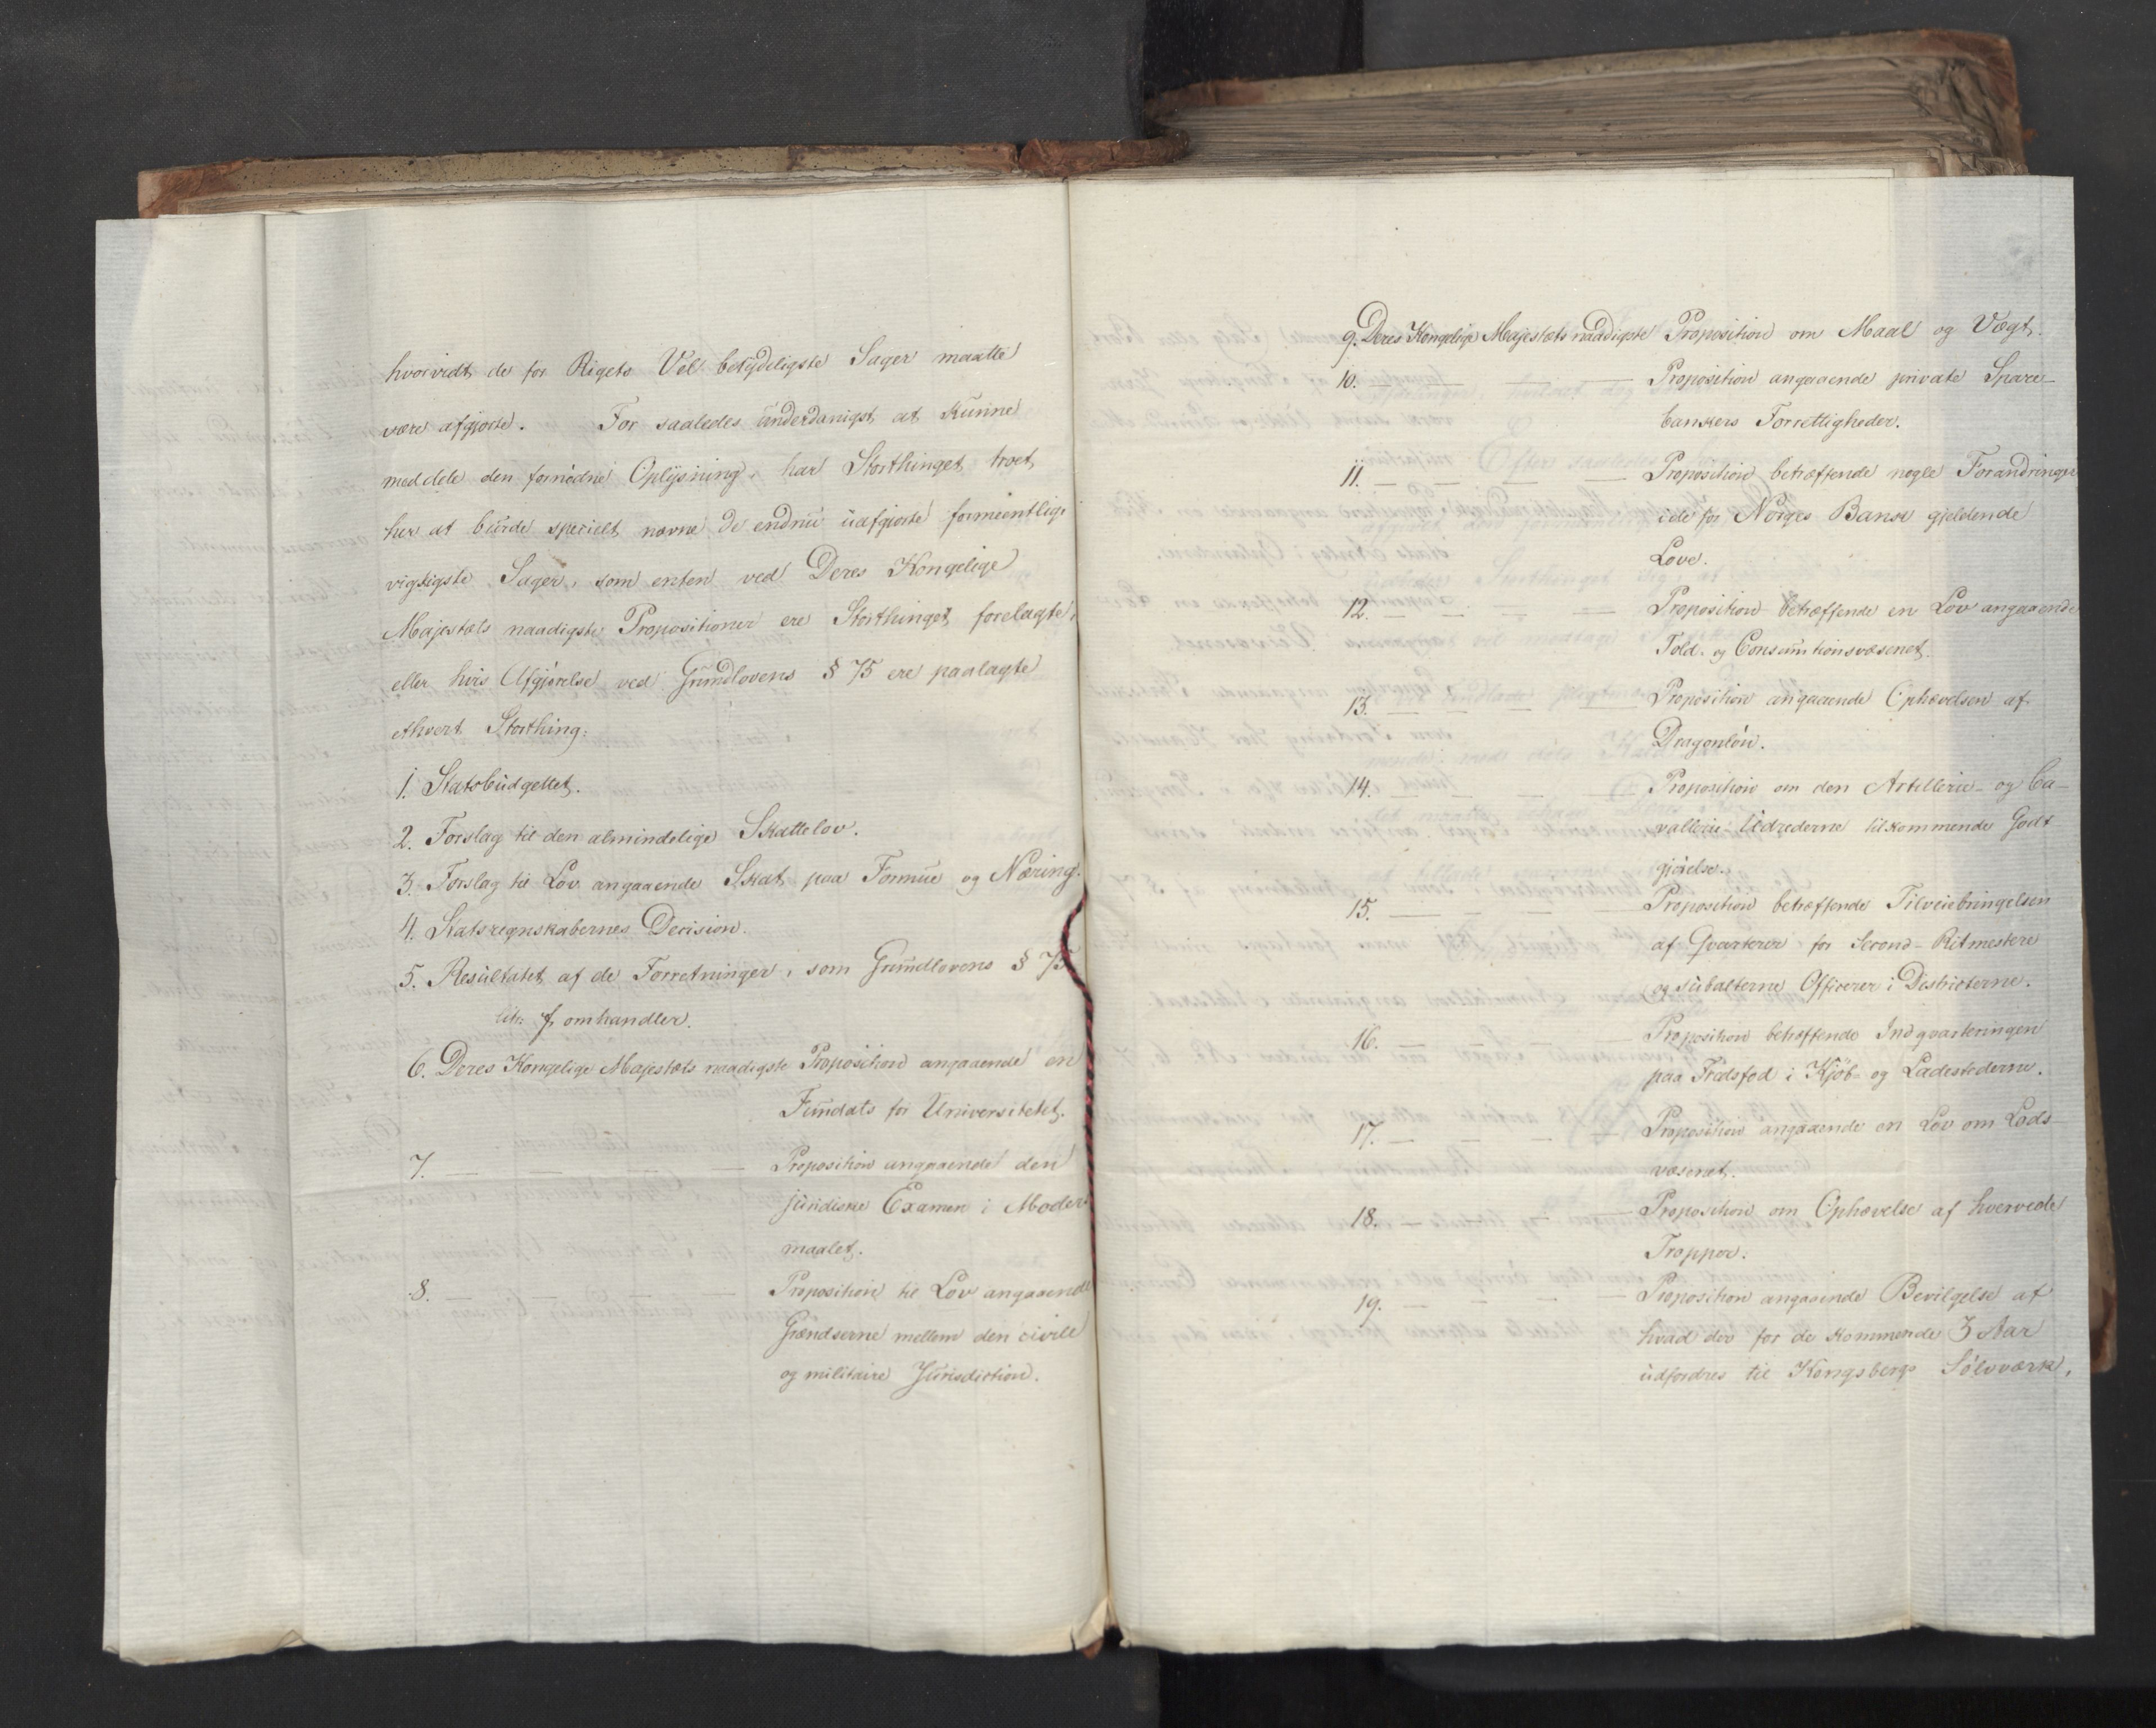 hvorvidt de for Rigets Vel betydeligste Sager maatte
være afgjorte. For saaledes underdanigst at kunne
meddele den fornödne Oplysning, har Storthinget troet
her at burde specielt nævne de endnu uafgjorte formeentlig
vigtigste Sager, som enten ved Deres Kongelige
Majestæts naadigste Propositioner ere Storthinget forelagte,
eller hvis Afgjörelse ved Grundlovens § 75 ere paalagte
ethvert Storthing:
1. Statsbudgettet.
2. Forslag til den almindelige Skattelov.
3. Forslag til Lov angaaende Skat paa Formue og Næring.
4. Statsregnskabernes Decision.
5. Resultatet af de Forretninger, som Grundlovens § 75
litr: f, omhandler.
6. Deres Kongelige Majestæts naadigste Proposition angaaende en
Fundats for Universitetet.
7. — — — — Proposition angaaende den
juridiske Examen i Moders
maalet.
8. — — — — Proposition til Lov angaaende
Grændserne mellem den civile
og militaire Jurisdiction.
9. Deres Kongelige Majestæts naadigste Proposition om Maal og Vægt.
10. — — — — Proposition angaaende private Spare-
bankers Forrettigheder.
11. — — — — Proposition betræffende nogle Forandringer
i de for Norges Bank gjeldende
Love.
12. — — — — Proposition betræffende en Lov angaaende
Told- og Consumtionsvæsenet.
13. — — — — Proposition angaaende Ophævelsen af
Dragonlön.
14. — — — — Proposition om den Artillerie- og Ca-
vallerie Udrederne tilkommende Godt
gjörelse.
15. — — — — Proposition betræffende Tilveiebringelsen
af Qvarterer for Second-Ritmestere
og subalterne Officerer i Districterne.
16. — — — — Proposition betræffende Indqvarteringen
paa Fredsfod i Kjöb- og Ladestederne.
17. — — — — Proposition angaaende en Lov om Lods
væsenet.
18. — — — — Proposition om Ophævelse af hvervede
Tropper.
19. — — — — Proposition angaaende Bevilgelse af
hvad der for de kommende 3 Aar
udfordres til Kongsbergs Sölvværk,